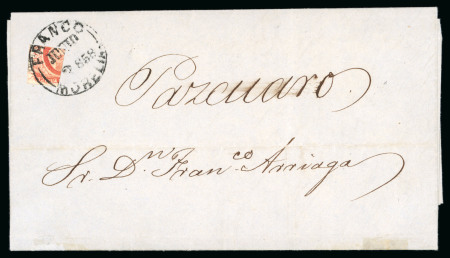 FRANCO
JUNIO
2 858
MORELIA
Pazcuaro
Sr. Dn. Franco. Arriaga